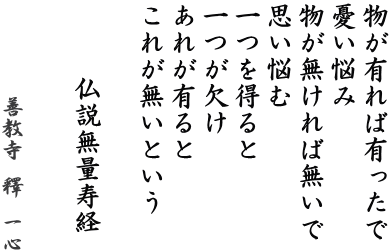 物が有れば有ったで
憂い悩み
物が無ければ無いで
思い悩む
一つを得ると
一つが欠け
あれが有ると
これが無いという
仏説無量寿経
善教寺 釋 一心